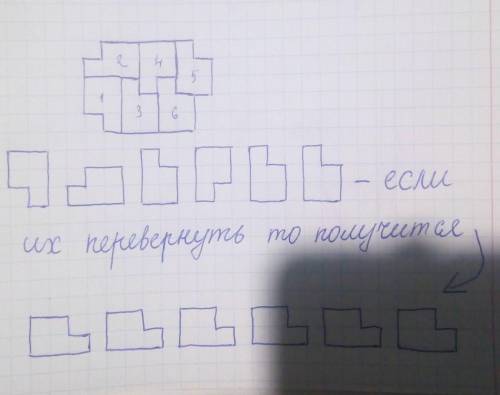 2 4
5
1 3 6
– если
их перевернуть то получится